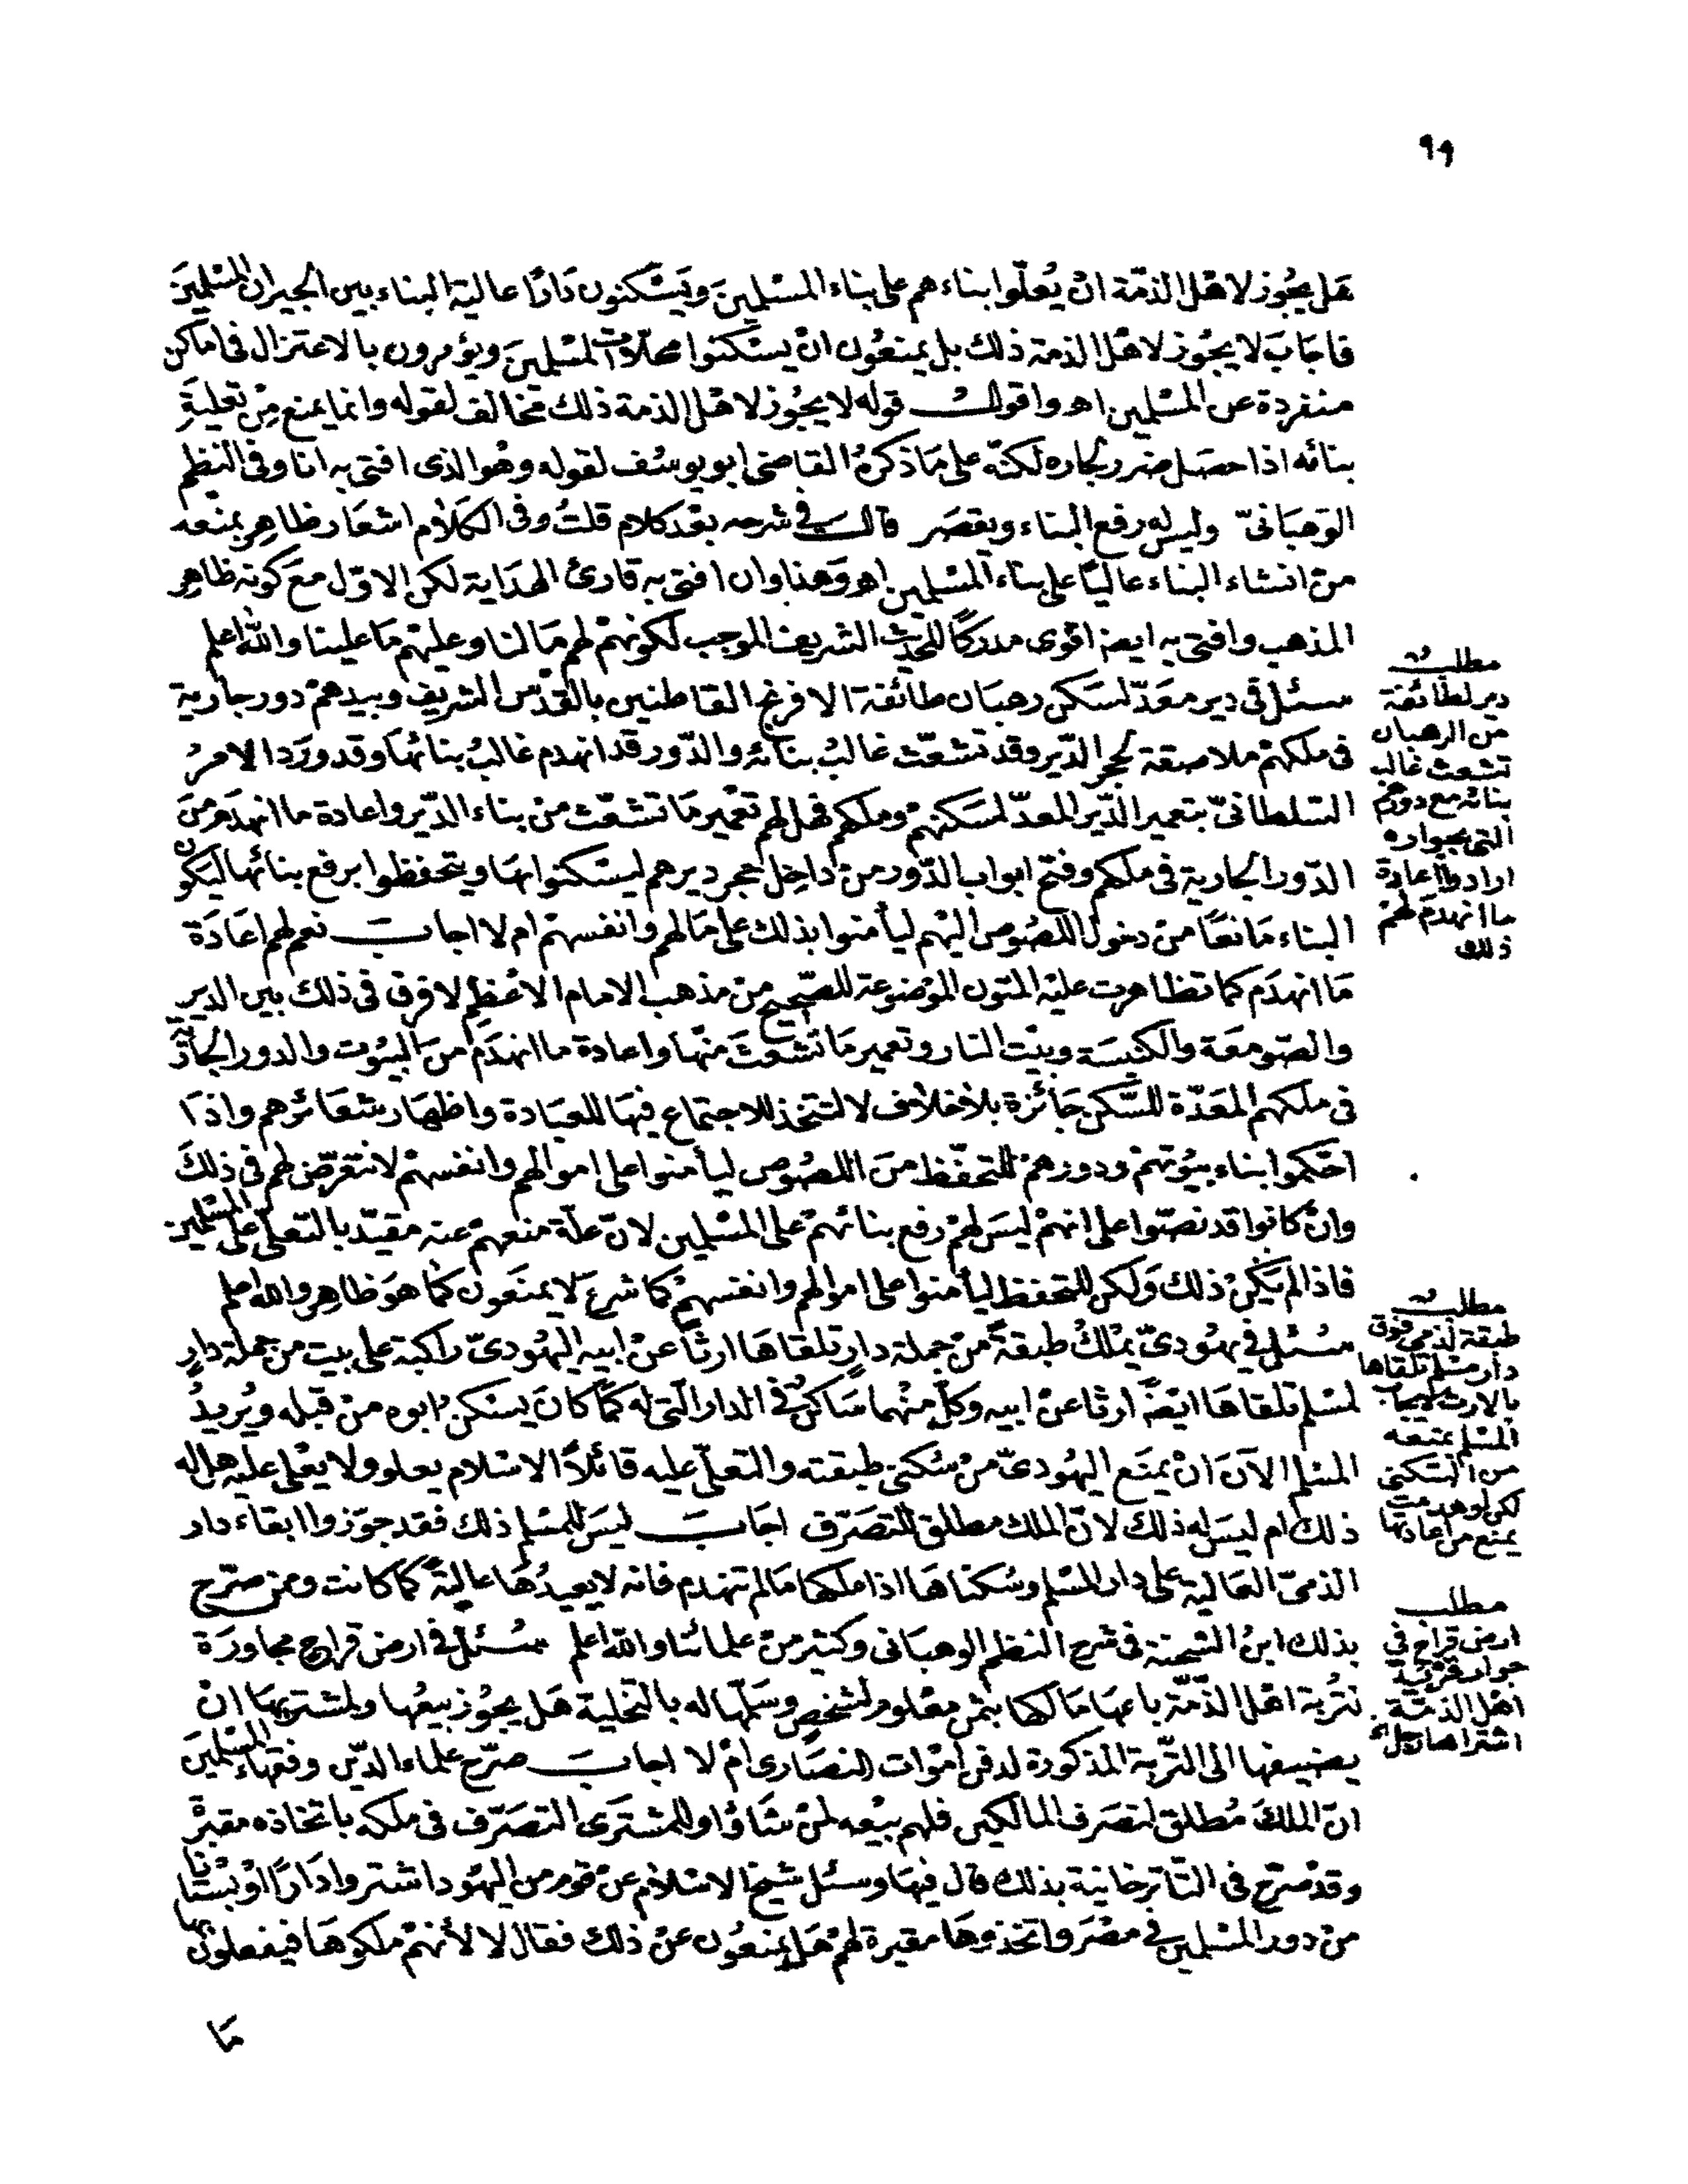 ٩٩
هَل يجُوز لاهْل الذمّة انْ يُعلّوا بناءهم على بناء المسْلمِينَ ويَسْكنون دَارًا عالية البناء بين الجيران المسْلمِينَ
فاجَابَ لا يجُوز لاهْل الذمة ذلك بل يمنعُون انْ يسكنوا محلّات المسْلمِينَ ويؤمرون بالاعتزال فى اماكن
منفردة عن المسْلمين اهـ واقول قوله لا يجُوز لاهْل الذمة ذلك مخالف لقوله وانما يمنع مِنْ تعليَةِ
بنائه اذا حصَل ضرر لجاره لكنّه على مَا ذكرهُ القاضى ابو يوسُف لقوله وهُو الذى افتى به انا وفى النظم
الوَهبَانىّ وليس له رفع البناء ويقصَر قال فى شرحه بعْد كلام قلتُ وفى الكلَام اشعَار ظاهِر بمنْعه
منْ انشاء البناء عاليًا على بناء المسْلمين اهـ وَهذا وان افتى به قارئ الهدَاية لكن الاوّل معَ كونه ظاهِر
المذهب وافتى به ايضا اقوى مدركًا للحديث الشريف الموجب لكونهمْ لهم مَا لنا وعليْهم مَا علينا والله اعلم
سئل فى دير معَدّ لسَكن رهبَان طائفة الافرنج القاطنين بالقدْس الشريف وبيدهمْ دور جَارية
فى ملكهمْ ملاصقة لحجر الدّير وقد تشعّث غالبُ بنائه والدّور قد انهدم غالبُ بنائهَا وقد ورَد الامرُ
السّلطانىّ بتعمير الدّير المعدّ لسَكنهمْ وملكهم فهل لهم تعْمير مَا تشعّث منْ بناء الدّير واعادة ما انهدَم منَ
الدّور الجارية فى ملكهم وفتح ابواب الدّور منْ داخِل حجر ديرهم ليسْكنوا بهَا ويتحفظوا برفع بنائها ليكون
البناء مَانعًا منْ دخول اللصُوص اليْهم ليأمنوا بذلك على مَالهم وانفسهمْ ام لا اجاب نعم لهم اعَادَة
مَا انهدَم كما تظاهرت عليْه المتون الموْضوعة للصّحيح منْ مذهب الامام الاعْظم لا فرق فى ذلك بين الدير
والصّومعَة والكنيسَة وبيْت النار وتعمير مَا تشعثَ منْها واعادة ما انهدَم منَ البيُوت والدور الجاريَة
فى ملكهم المعَدّة للسّكن جَائزة بلَا خلَاف لا لتتخذ للاجتماع فيهَا للعبَادة واظهَار شعَائرهم واذَا
احْكموا بناء بيُوتهمْ ودورهمْ للتحفّظ منَ اللصُوص ليأمنوا على اموالهم وانفسهمْ لا نتعَرّض لهم فى ذلكَ
وانْ كانوا قد نصّوا على انهمْ ليسَ لهمْ رفع بنائهمْ على المسْلمين لانّ علّة منعهمْ عنه مقيّد بالتعلّى على المسْلمين
فاذا لم يَكنْ ذلك وَلكن للتحفظ ليأمنوا على اموالهم وانفسهمْ كما شرع لا يمنَعون كمَا هوَ ظاهِر والله اعلم
سُئل فى يهُودىّ يمْلكُ طبقةً منْ جملة دارٍ تلقاهَا ارثًا عنْ ابيه اليهُودىّ راكبة على بيت من جملة دارٍ
لمسْلم تلقاهَا ايْضًا ارثا عنْ ابيه وكلّ منْهما سَاكنٌ فى الدار الّتى له كمَا كانَ يسكن ابوه منْ قبْله ويُريدُ
المسْلم الآنَ انْ يمنَع اليهُودىّ منْ سُكنى طبقته والتعلّى عليه قائلًا الاسْلام يعلو ولا يعْلى عليْه هل له
ذلك ام ليسَ له ذلك لانّ الملك مطلق للتصَرّف اجَابَ ليسَ للمسْلم ذلك فقد جوّزوا ابقاء دار
الذمىّ العَالية على دار المسْلم وسُكناهَا اذا ملكها مَا لم تنهدم فانه لا يعيدُهَا عاليةً كما كانت وممن صرّح
بذلك ابنُ الشحنة فى شرح النظم الوهبَانى وكثير منْ علمائنا والله اعلم سُئل فى ارض قراح مجاورَة
لتُربة اهْل الذّمّة باعهَا مَالكها بثمن معْلوم لشخص وسَلّمها له بالتخلية هَل يجُوز بيعُها ولمشتريهَا انْ
يضيفها الى التّربة المذكورة لدفن امْوات النصَارى امْ لا اجابَ صرّح علماء الدّين وفقهاء المسْلمينَ
انّ الملكَ مُطلق لتصَرف المالكين فلهم بيْعه لمنْ شَاؤا وللمشترى التصَرّف فى ملكه باتخاذه مقبرةً
وقدْ صَرّح فى التّاترخانية بذلك قال فيهَا وسئل شيخ الاسْلَام عنْ قوم من اليهُود اشتروا دَارًا اوْ بسْتانا
منْ دور المسْلمين فى مصْر واتخذوهَا مقبرة لهمْ هَل يمنعُون عنْ ذلك فقال لا لأنهمْ ملكوهَا فيفعلون بها
مَا
مطلب
دير لطائفة
من الرهبان
تشعث غالب
بنائه مع دورهم
التى بجواره
ارادوا اعادة
ما انهدم لهم
ذلك
مطلب
طبقة لذمى فوق
دار مسلم تلقاها
بالارث ليس
المسلم بمنعه
من السكنى
لكن لو هدمت
يمنع من اعادتها
مطلب
ارض قراح فى
جوار تربة
اهل الذمّة
اشتراها رجل